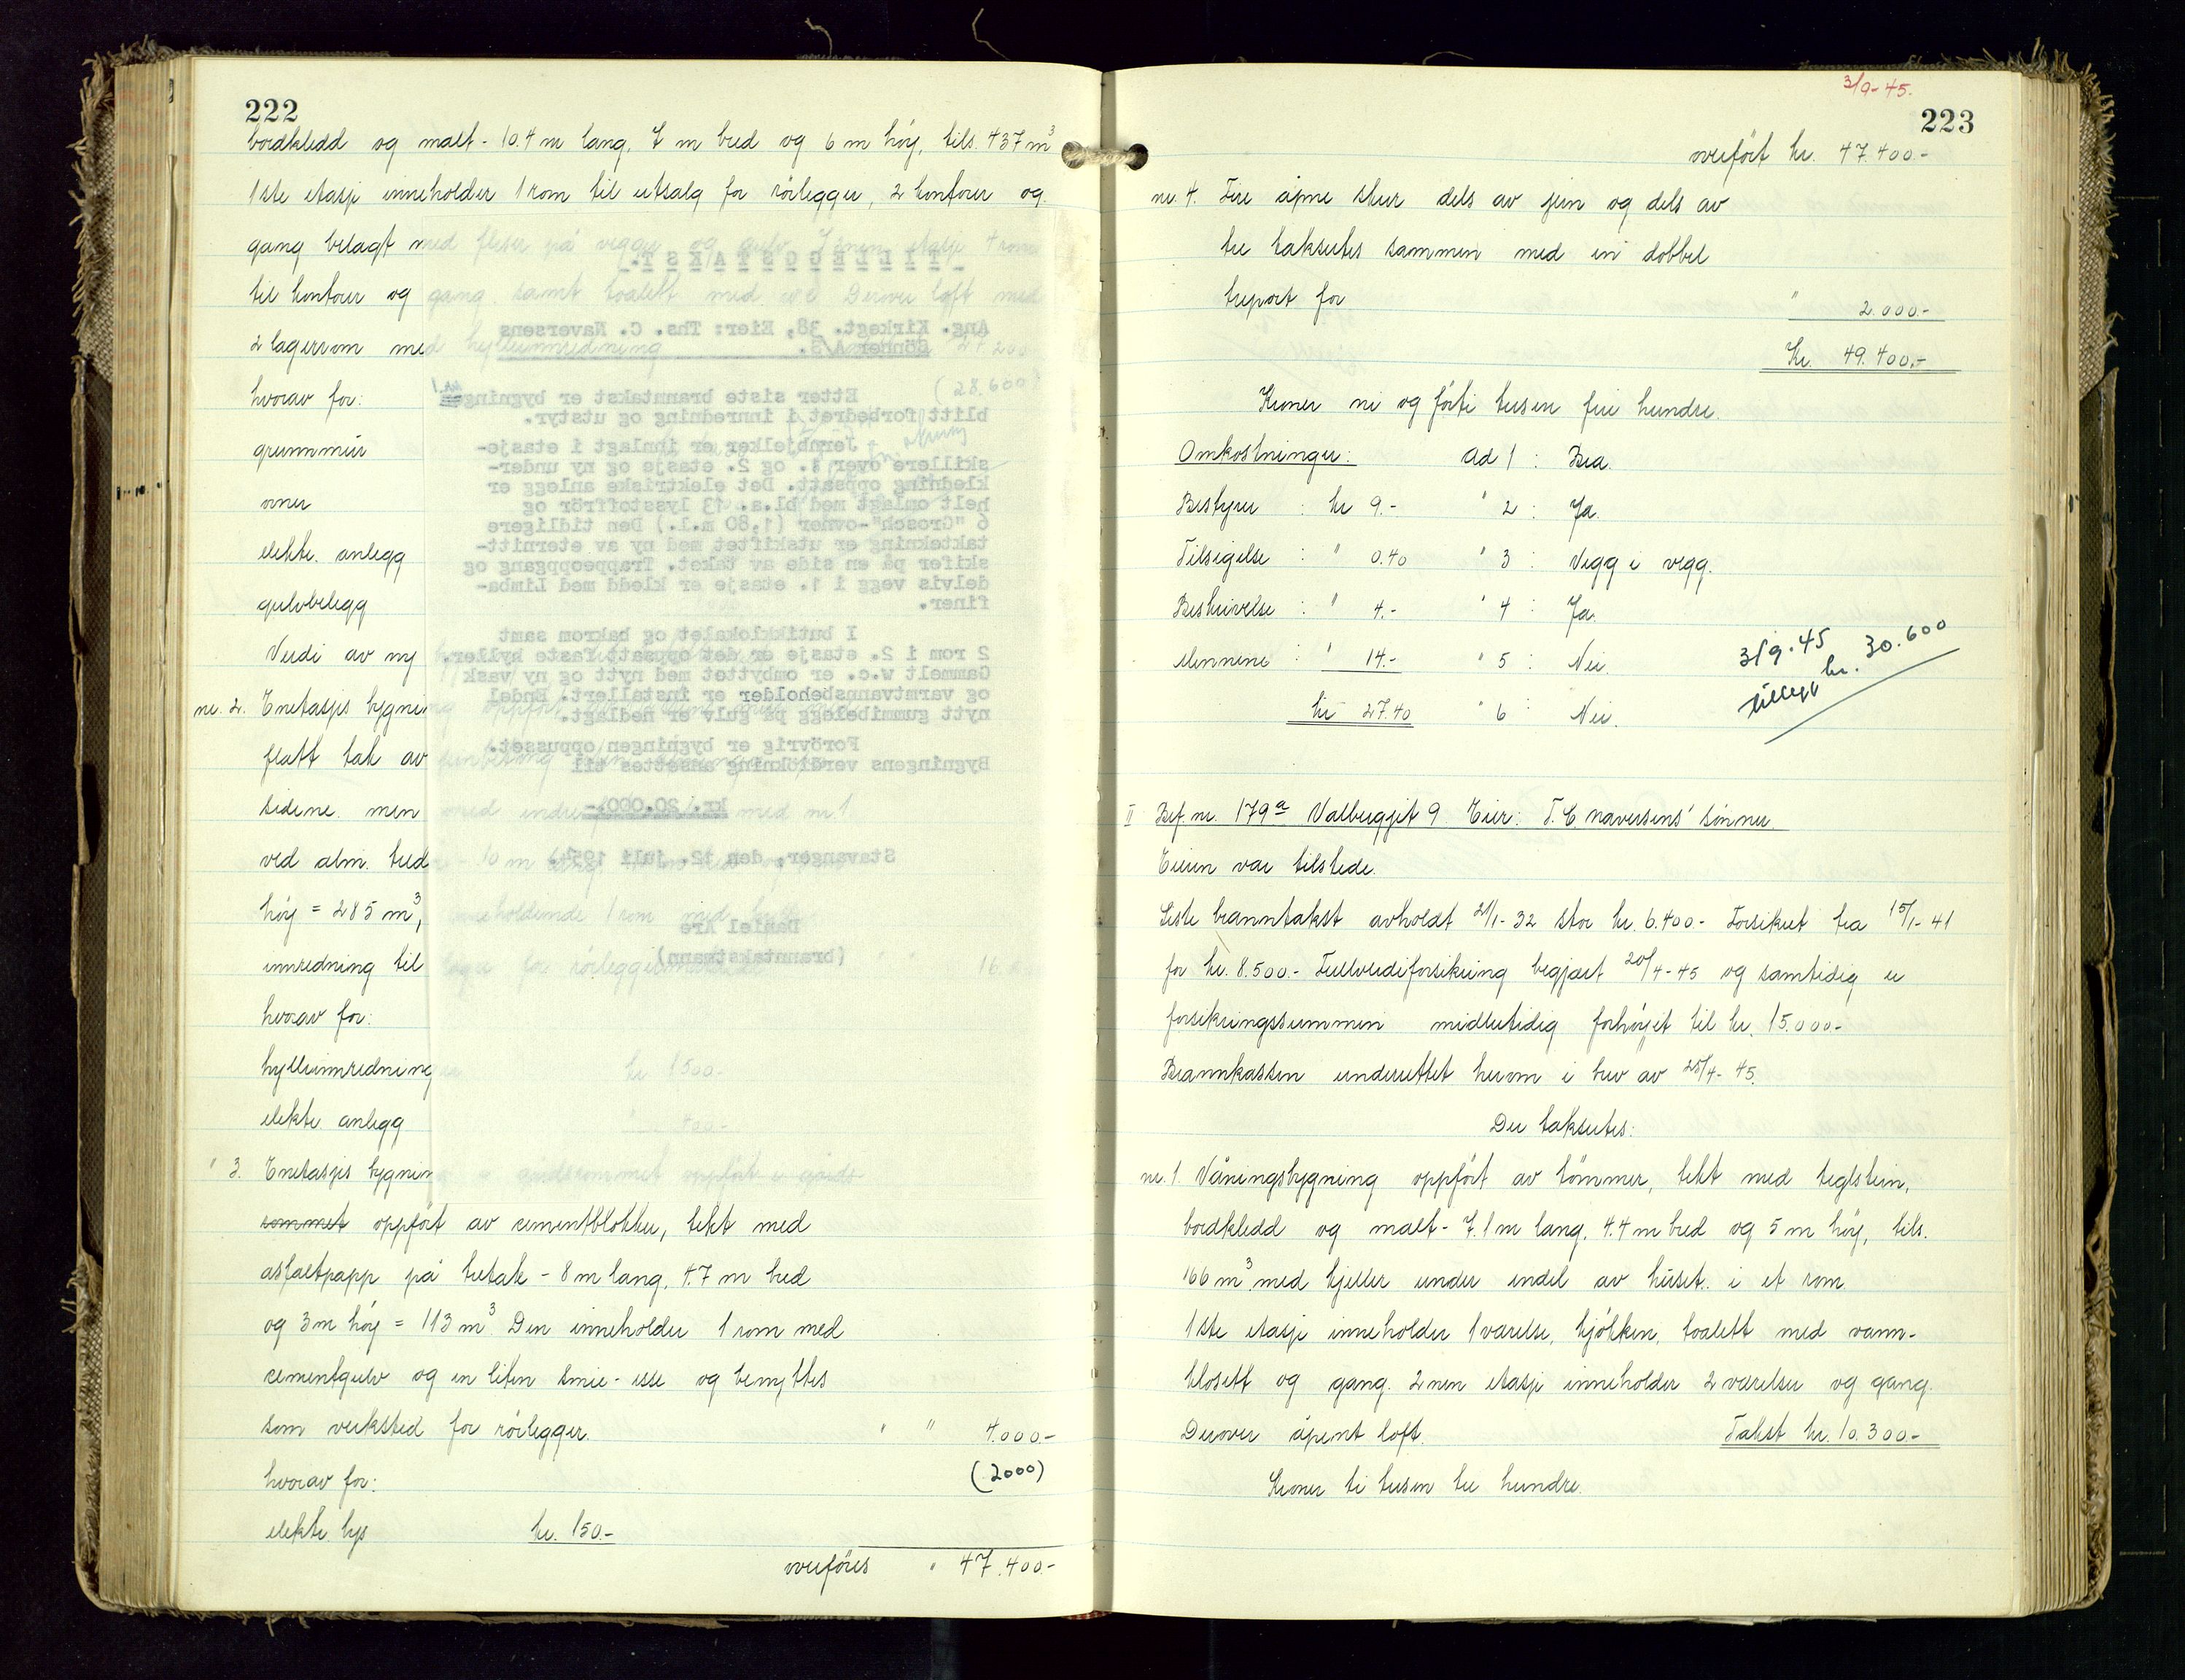 222
bordkledd og malt - 10.4 m lang, 7 m bred og 6 m høy, tils. 437 m³
1ste etasje inneholder 1 rom til utsalg for rörlegger, 2 kontorer og
gang belagt med fliser på vegger og gulv. 2nen etasje 4 rom
til kontorer og gang samt toalett med wc Derover loft med
2 lagerrom med hylleinnredning
hvorav for: (28.600)
grunnmur
ovner
elektr. anlegg
gulvbelegg
Verdi av ny
nr. 2. Enetasjes bygning
flatt tak av
sidene men med med nr 1
ved alm. bred 10 m
høy = 285 m³, inneholdende 1 rom med
innredning til lager for rörlegger
hvorav for:
hylleinnredning kr 1500.-
elektr. anlegg " 400.-
" 3. Enetasjes bygning i gårdsrommet oppfört i gårds
sommet oppfört av cementblokker, tekt med
asfaltpapp på tretak - 8 m lang, 4.7 m bred
og 3 m høy = 113 m³. Den inneholder 1 rom med
cementgulv og en liten smie-esse og benyttes
som verksted for rörlegger. " " 4.000.-
hvorav for: (2000)
elektr. lys kr. 150.-
overföres " 47.400.-
TILLEGGSTAKST.
Ang. Kirkegt. 38, Eier: Ths. C. Naversens
Sönner A/S.
Etter siste branntakst er bygningen
blitt forbedret i innredning og utstyr.
Jernbjelker er innlagt i etasje-
skillere over 1. og 2. etasje og ny under-
kledning oppsatt. Det elektriske anlegg er
helt omlagt med bl.a. 13 lysstoffrör og
6 "Grosch"-ovner (1,80 m.l.) Den tidligere
taktekning er utskiftet med ny av eternitt-
skifer på en side av taket. Trappeoppgang og
delvis vegg i 1. etasje er kledd med Limba-
finer.
I butikklokalet og bakrom samt
2 rom i 2. etasje er det oppsatt faste hyller.
Gammelt w.c. er ombyttet med nytt og ny vask
og varmtvannsbeholder er installert. Endel
nytt gummibelegg på gulv er nedlagt.
Forövrig er bygningen oppusset.
Bygningens verdiökning ansettes til
kr. 20.000.-
Stavanger, den 12. juli 1954.
Daniel Are
(branntakstmann)
3/9-45.
223
overfört kr. 47.400.-
nr. 4. Fire åpne skur dels av jern og dels av
tre takseres sammen med en dobbel
treport for " 2.000.-
Kr. 49.400.-
Kroner ni og förti tusen fire hundre.
Omkostninger: Ad 1 : Bra.
Bestyrer : kr 9.- " 2 : Ja.
Tilsigelse : " 0.40 " 3 : Vegg i vegg.
Beskrivelse : " 4.- " 4 : Ja.
Mennene : " 14.- " 5 : Nei.
kr 27.40 " 6 : Nei.
3/9.45
tillegg kr. 30.600
II Bef. nr. 179ª Valbergjet 9 Eier: T. C. Naversens' sönner.
Eieren var tilstede.
Siste branntakst avholdt 21/1-32 stor kr. 6.400.- Forsikret fra 15/1-41
for kr. 8.500.- Fullverdiforsikring begjært 20/4-45 og samtidig er
forsikringssummen midlertidig forhöyet til kr. 15.000.-
Brannkassen underrettet herom i brev av 25/4-45.
Der takseres:
nr. 1. Våningsbygning oppfört av tömmer, tekt med teglstein,
bordkledd og malt - 7.1 m lang, 4.4 m bred og 5 m høy, tils.
166 m³ med kjeller under endel av huset i et rom
1ste etasje inneholder 1 værelse, kjökken, toalett med vann-
klosett og gang. 2nen etasje inneholder 2 værelser og gang.
Derover åpent loft. Takst kr. 10.300.-
Kroner ti tusen tre hundre.